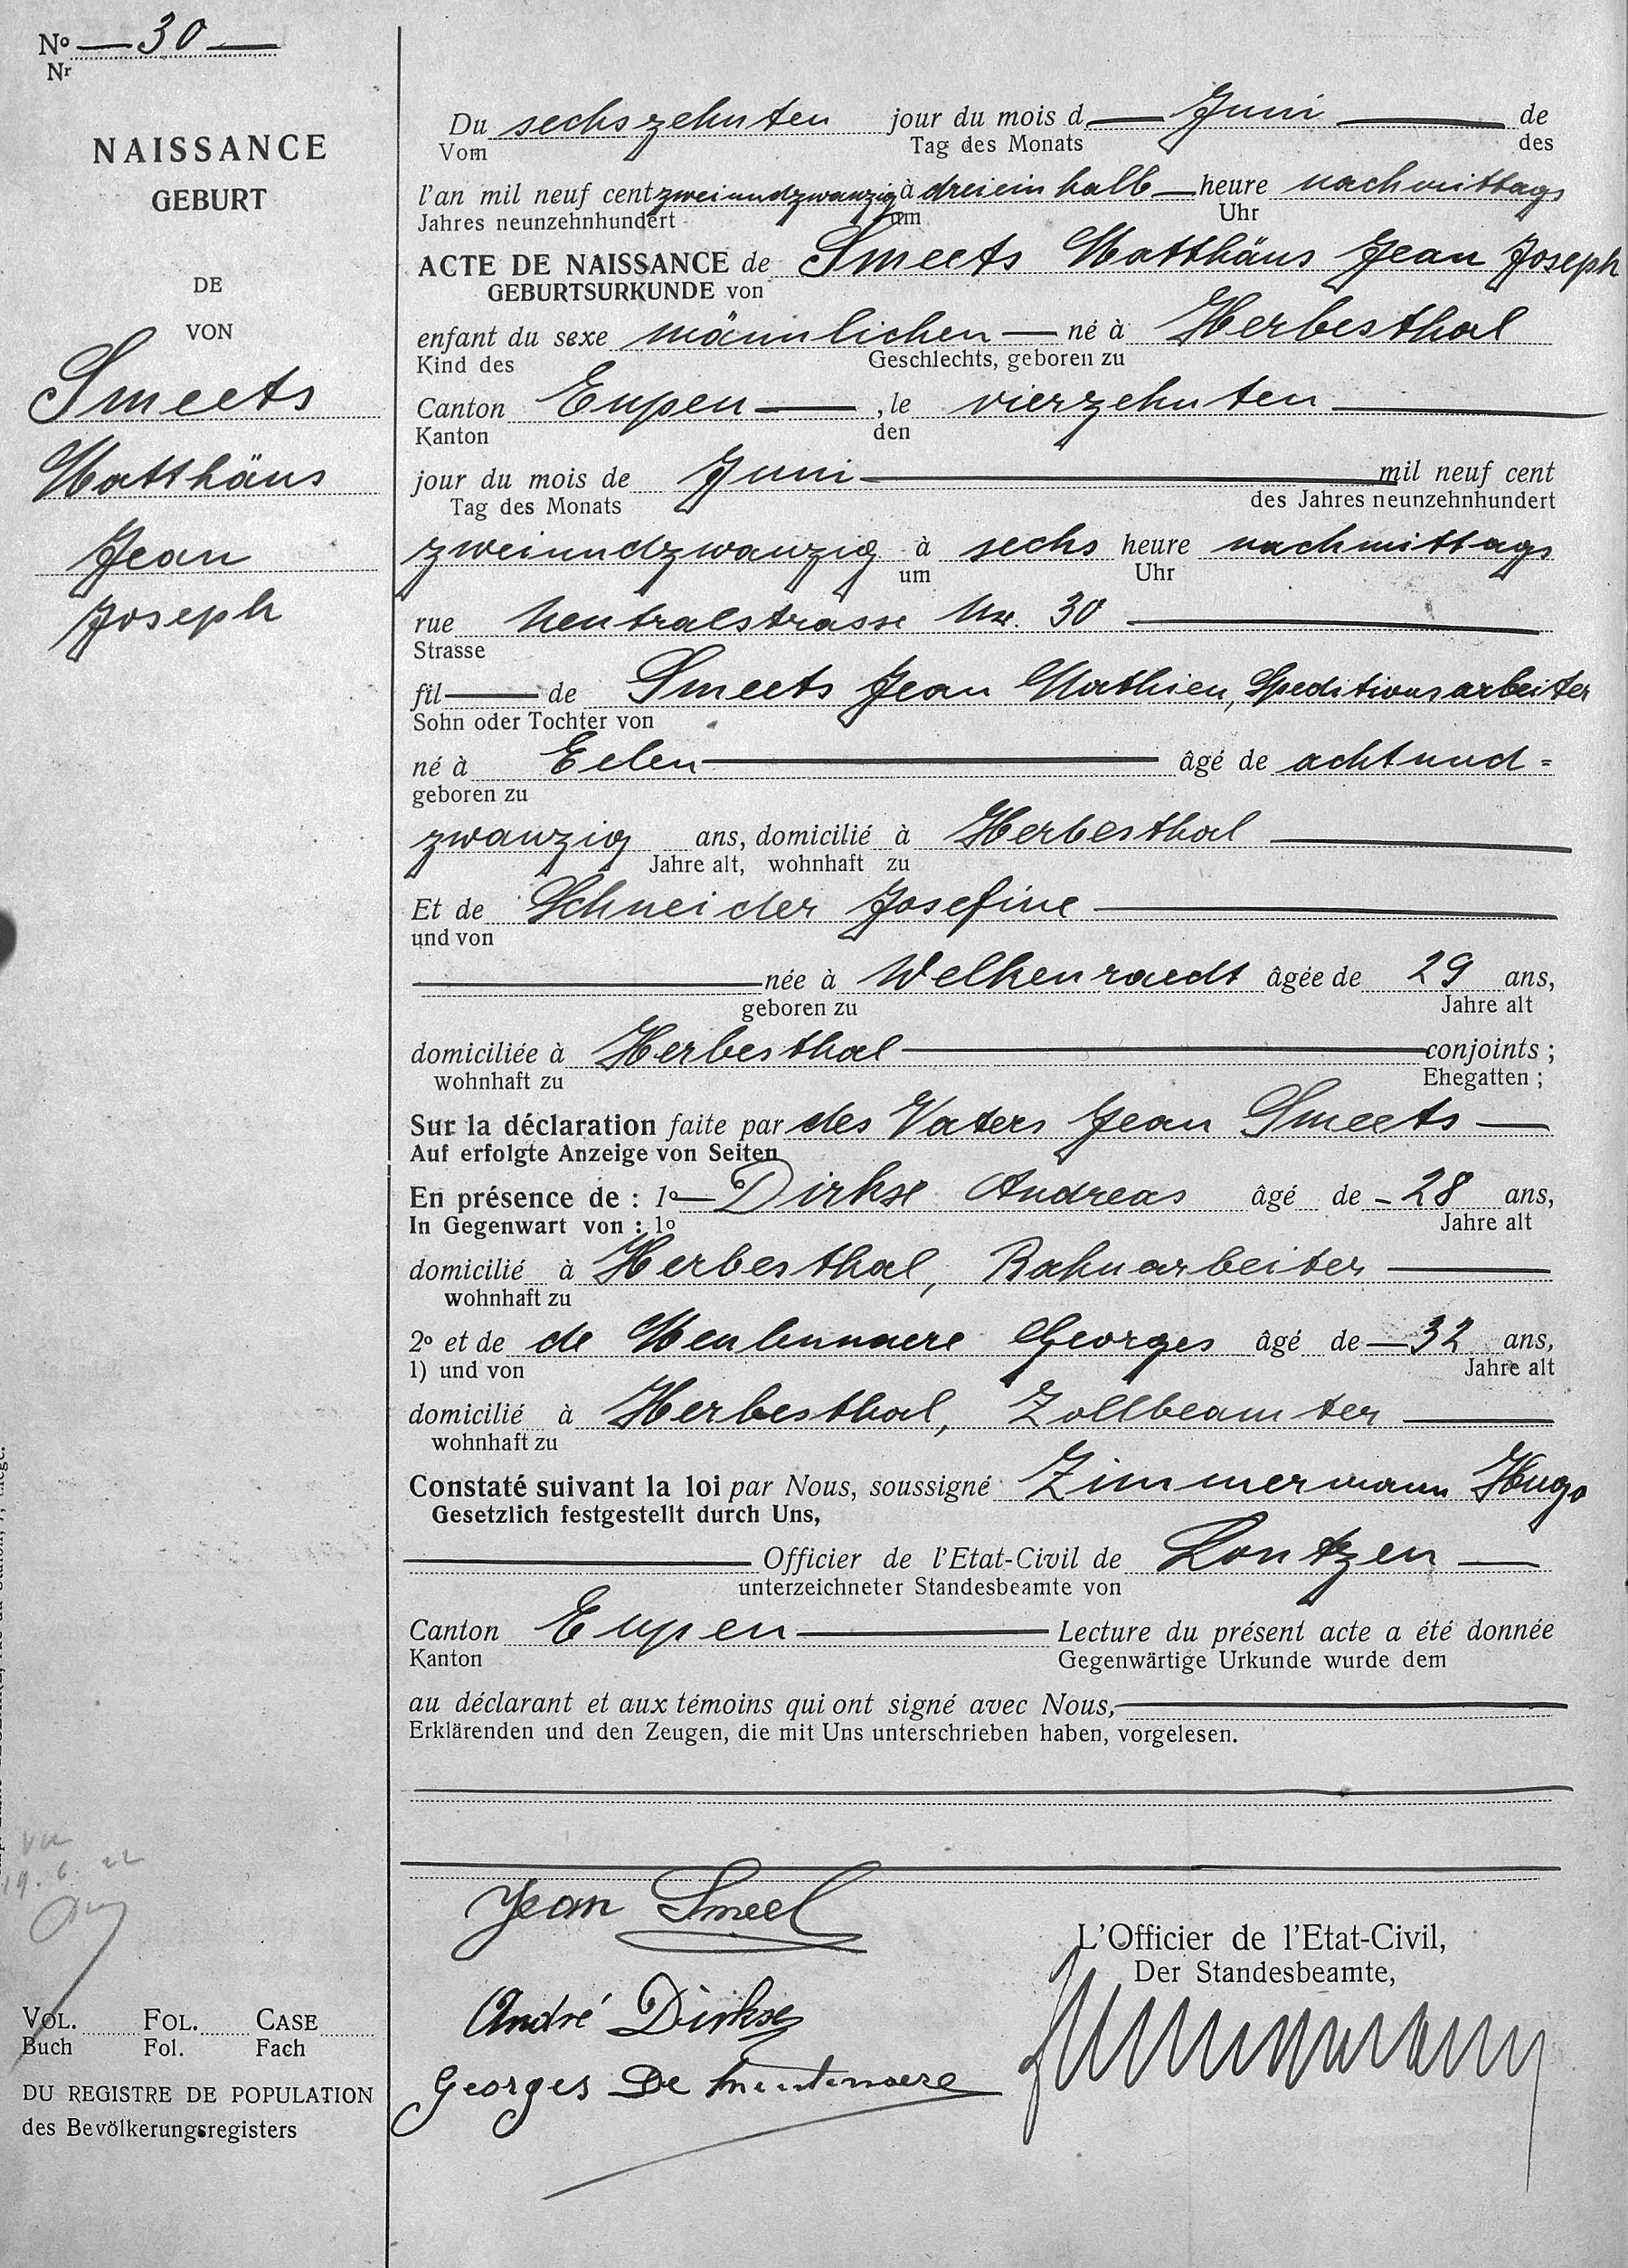 No — 30 —
Nr
NAISSANCE
GEBURT
DE
VON
Smeets
Matthäus
Jean
Joseph
Du sechszehnten jour du mois d — Juni — de
Vom Tag des Monats des
l'an mil neuf cent zweiundzwanzig à dreiein halb — heure nachmittags
Jahres neunzehnhundert um Uhr
ACTE DE NAISSANCE de Smeets Matthäus Jean Joseph
GEBURTSURKUNDE von
enfant du sexe männlichen — né à Herbesthal
Kind des Geschlechts, geboren zu
Canton Eupen — , le vierzehnten —
Kanton den
jour du mois de Juni — mil neuf cent
Tag des Monats des Jahres neunzehnhundert
zweiundzwanzig à sechs heure nachmittags
um Uhr
rue Neutralstrasse Nr. 30 —
Strasse
fil — de Smeets Jean Mathieu, Speditionsarbeiter
Sohn oder Tochter von
né à Eelen — âgé de achtund =
geboren zu
zwanzig ans, domicilié à Herbesthal —
Jahre alt, wohnhaft zu
Et de Schneider Josefine —
und von
— née à Welkenraedt âgée de 29 ans,
geboren zu Jahre alt
domiciliée à Herbesthal — conjoints ;
wohnhaft zu Ehegatten ;
Sur la déclaration faite par des Vaters Jean Smeets —
Auf erfolgte Anzeige von Seiten
En présence de : 1o — Dirkse Andreas âgé de - 28 ans,
In Gegenwart von : 1o Jahre alt
domicilié à Herbesthal, Bahnarbeiter —
wohnhaft zu
2o et de de Meulenaere Georges âgé de — 32 ans,
1) und von Jahre alt
domicilié à Herbesthal, Zollbeamter —
wohnhaft zu
Constaté suivant la loi par Nous, soussigné Zimmermann Hugo
Gesetzlich festgestellt durch Uns,
— Officier de l'Etat-Civil de Lontzen —
unterzeichneter Standesbeamte von
Canton Eupen — Lecture du présent acte a été donnée
Kanton Gegenwärtige Urkunde wurde dem
au déclarant et aux témoins qui ont signé avec Nous, —
Erklärenden und den Zeugen, die mit Uns unterschrieben haben, vorgelesen.
Jean Smeet
André Dirkse
Georges De Meulenaere
L'Officier de l'Etat-Civil,
Der Standesbeamte,
Zimmermann
Vu
19. 6. 22
VOL. FOL. CASE
Buch Fol. Fach
DU REGISTRE DE POPULATION
des Bevölkerungsregisters